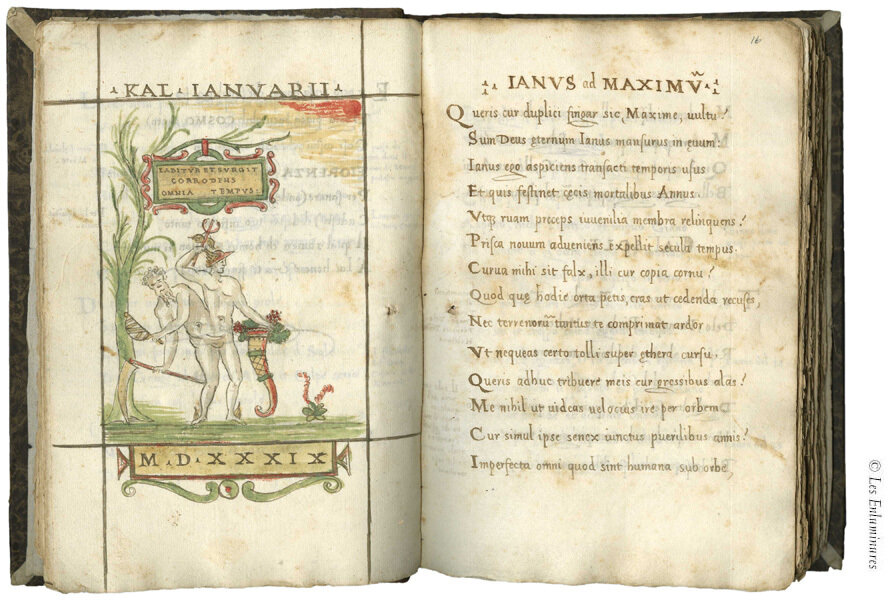 ·KAL·IANVARII·
LABITVR ET SVRGIT
CORRODENS
OMNIA TEMPVS·
M·D·XXXIX
16
IANVS ad MAXIMṼ
Queris cur duplici fingar sic, Maxime, uultu?
Sum Deus ęternum Ianus mansurus in euum:
Ianus ego aspiciens transacti temporis usus
Et quis festinet cęcis mortalibus Annus.
Vtq; ruam pręceps iuuenilia membra relinquens?
Prisca nouum adueniens expellit secula tempus.
Curua mihi sit falx, illi cur copia cornu?
Quod quę hodie orta petis, cras ut cedenda recuses,
Nec terrenorũ tantus te comprimat ardor
Vt nequeas certo tolli super ęthera cursu.
Queris adhuc tribuere meis cur gressibus alas?
Me nihil ut uideas uelocius ire per orbem
Cur simul ipse senex iunctus puerilibus annis?
Imperfecta omni quod sint humana sub orbe
© Les Enluminures